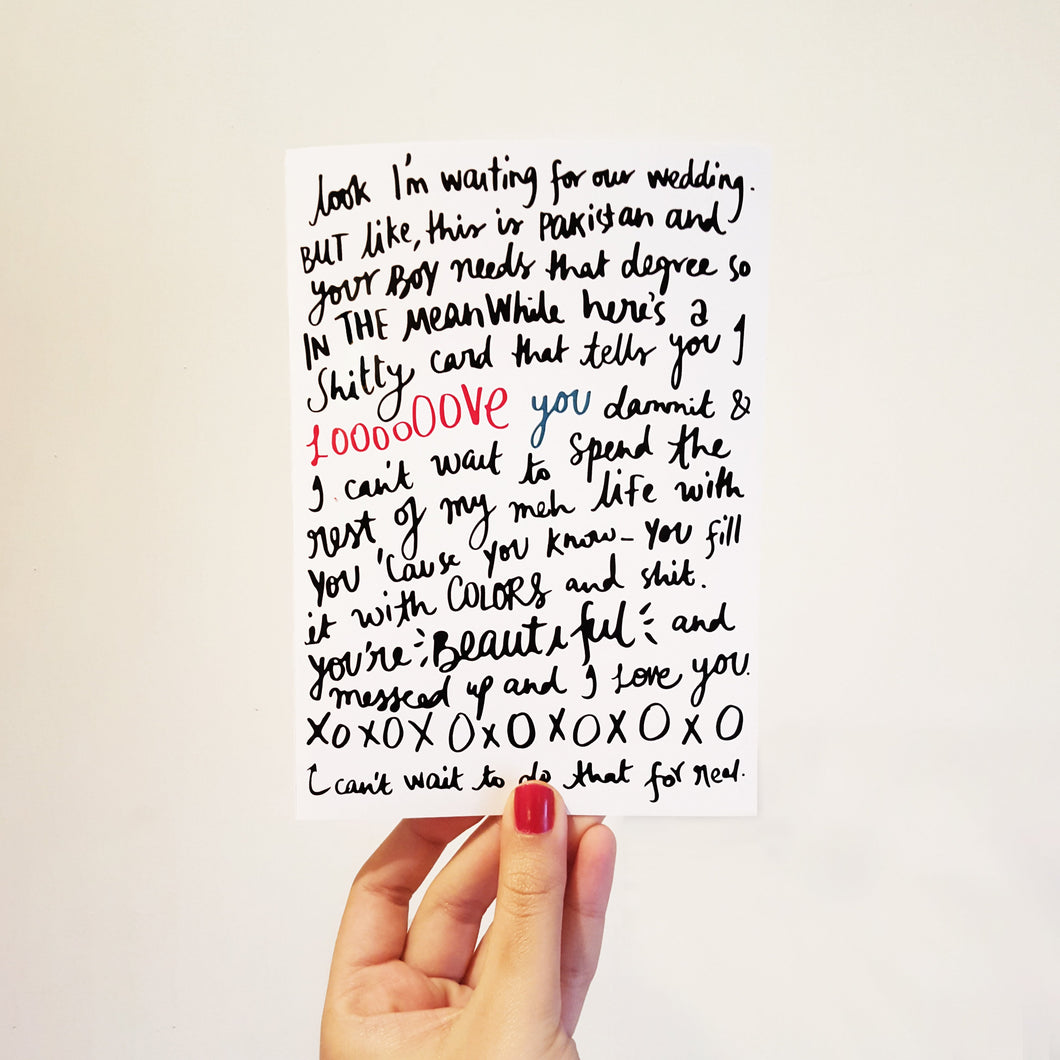 look I'm waiting for our wedding.
BUT like, this is Pakistan and
your BOY needs that degree so
IN THE MeanWhile here's a
Shitty card that tells you I
LOOOOOOOVe you dammit &
I can't wait to spend the
rest of my meh life with
you 'cause you know - you fill
it with COLORS and shit.
you're Beautiful and
messed up and I Love you.
XOXOXOXOXOXOXO
can't wait to do that for real.